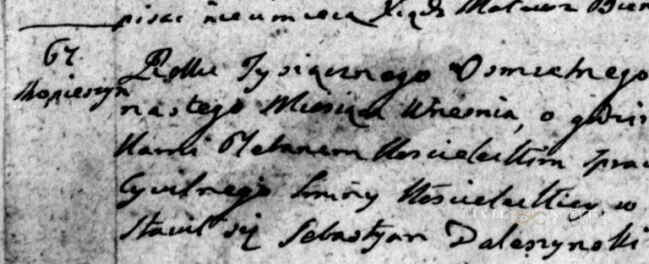 pisać nieumieia Xiądz Mateusz
67.
Roku Tysiącznego Osmsetnego
nastego Miesiąca Wrzesnia, o godzi
Nami Plebanem Kościeleckim Spra
Cywilnego Gminy Kościeleckiey w
Stawił się Sebastyan Daleszynski